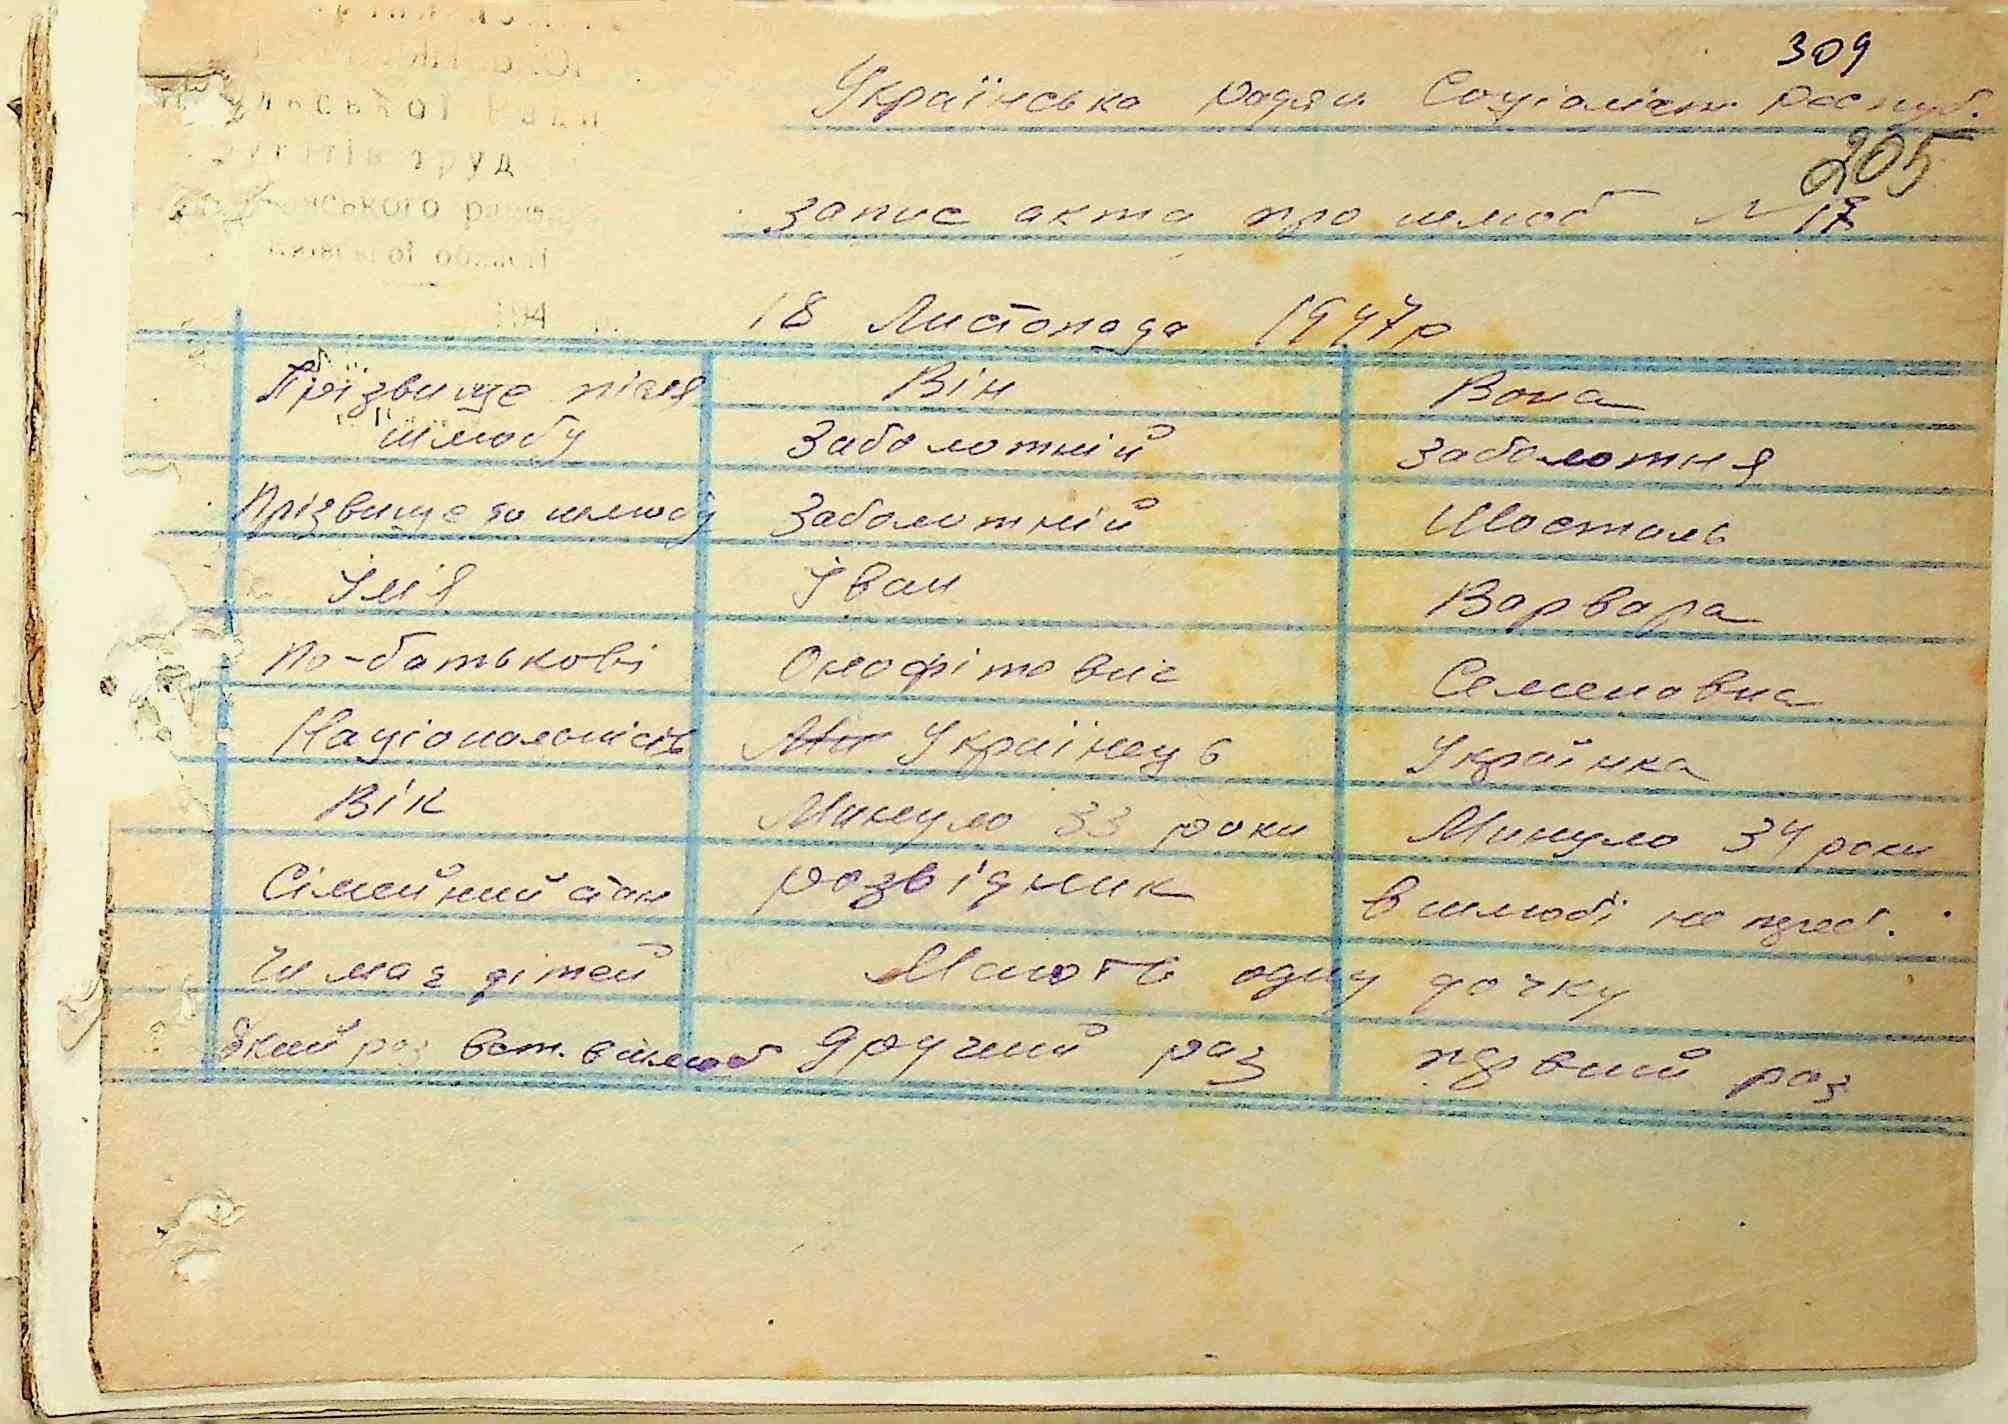 309
Українська радян. Соціаліст. Респуб.
205
Запис акта про шлюб N 17
18 Листопада 1947 р
Прізвище після шлюбу Він Вона
Заболотній Заболотня
Прізвище до шлюбу Заболотній Шосталь
Імія Іван Варвара
По-батькові Онофітович Семеновна
Національність Українець Українка
Вік Минуло 33 роки Минуло 34 роки
Сімейний стан розвідник в шлюбі не преб.
Чи має дітей Мають одну дочку
Який раз вст. в шлюб другий раз первий раз